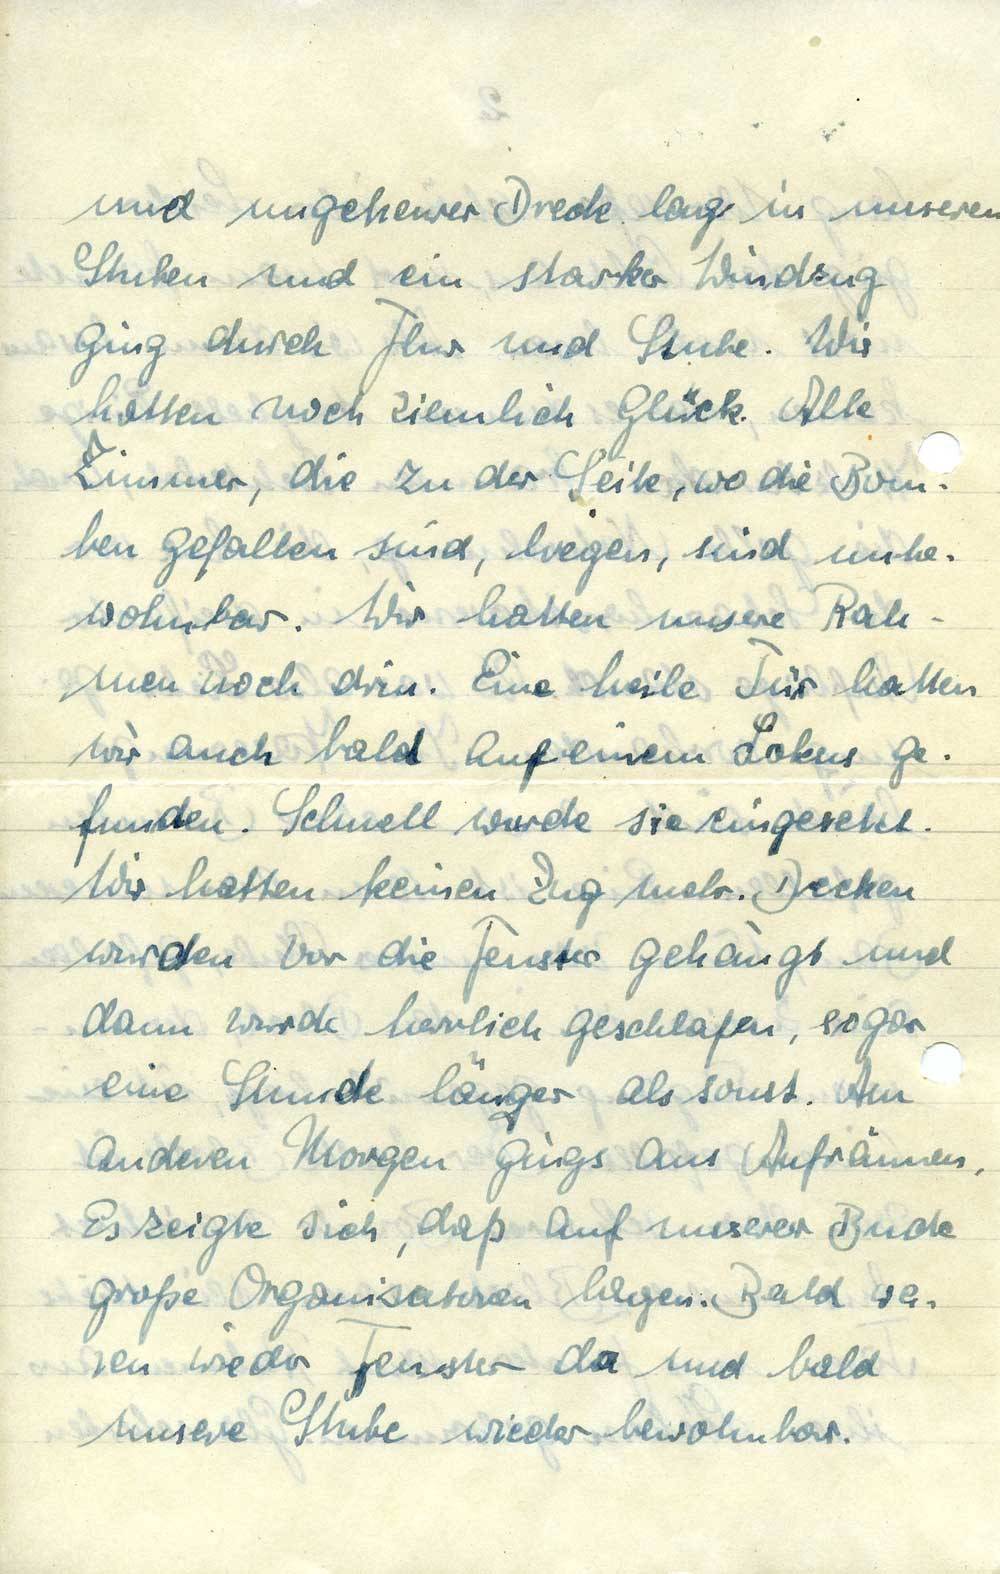 und ungeheurer Dreck lag in unseren
Stuben und ein starker Windzug
ging durch Flur und Stube. Wir
hatten noch ziemlich Glück. Alle
Zimmer, die zu der Seite, wo die Bom-
ben gefallen sind, liegen, sind unbe-
wohnbar. Wir hatten unsere Rah-
men noch drin. Eine heile Tür hatten
wir auch bald auf einem Lokus ge-
funden. Schnell wurde sie eingesetzt.
Wir hatten keinen Zug mehr. Decken
wurden vor die Fenster gehängt und
dann wurde herrlich geschlafen, sogar
eine Stunde länger als sonst. Am
anderen Morgen gings ans Aufräumen.
Es zeigte sich, daß auf unserer Bude
große Organisatoren lagen. Bald wa-
ren wieder Fenster da und bald
unsere Stube wieder bewohnbar.